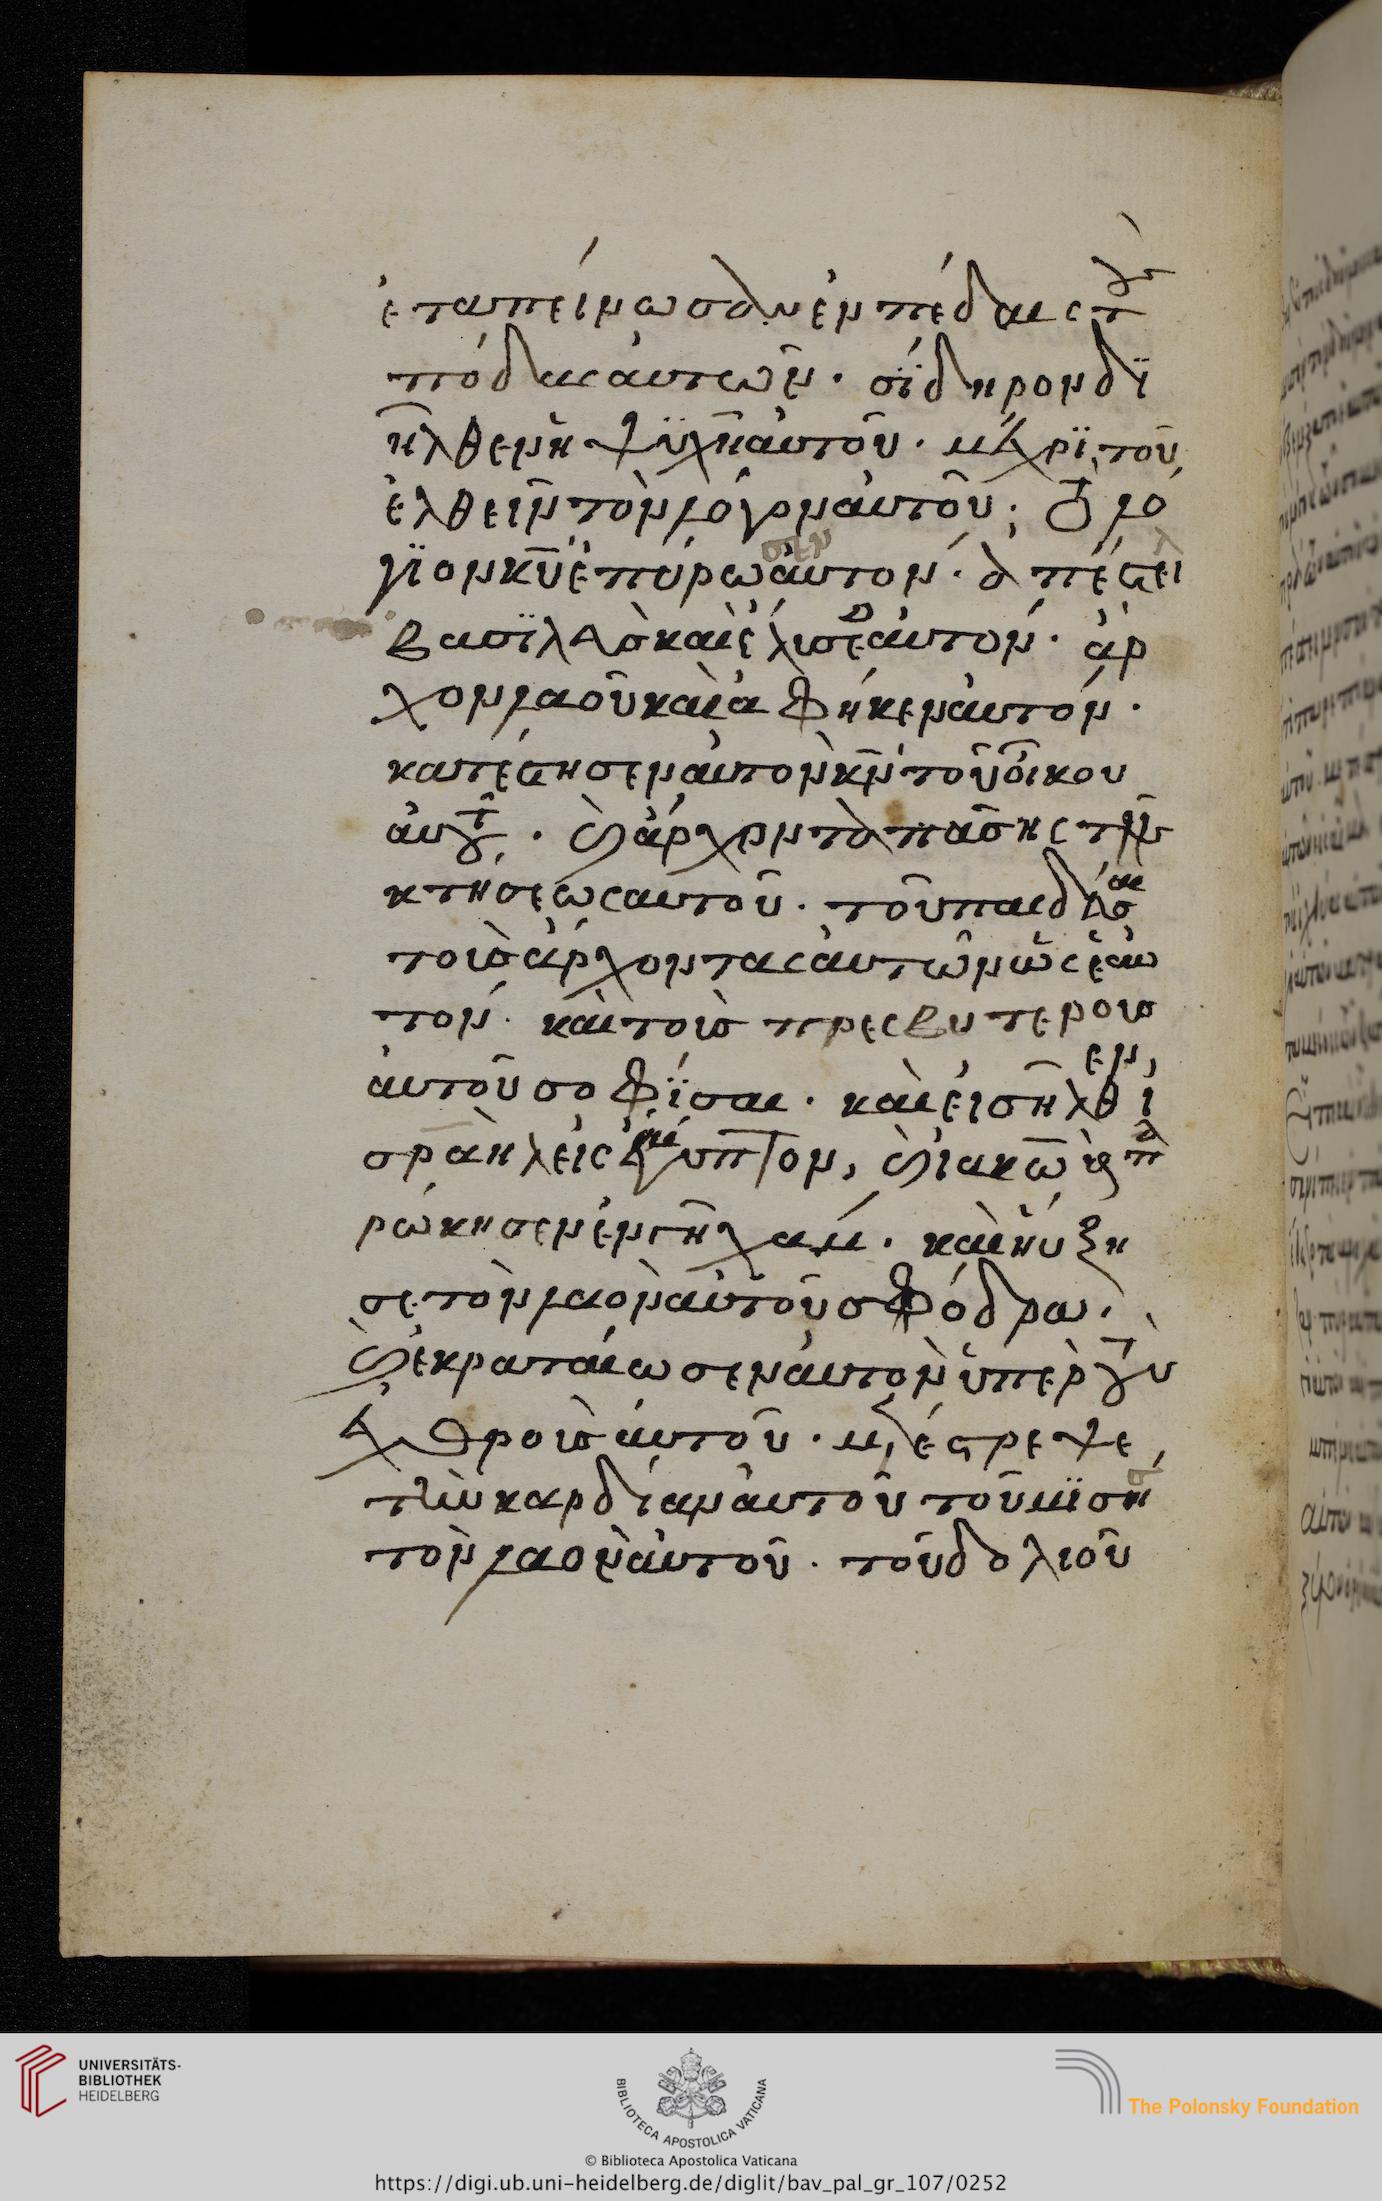 ἐταπείνωσαν ἐν πέδαις τοὺς
πόδας αὐτῶν · σΐδηρον δϊ
ῆλθεν ἡ ψϋχὴ αὐτοῦ · μέχρϊ τοῦ
ἐλθεῖν τὸν λόγον αὐτοῦ · τὸ λό
γϊον κῡ ἐπύρωσεν αὐτόν · ἀπέστει
βασϊλεὺς καὶ ἔλυσεν αὐτόν · ἄρ
χον λαοῦ καὶ ἀφῆκεν αὐτόν ·
κατέστησεν αὐτὸν κν̄ τοῦ οἴκου
αὐτοῦ · καὶ ἄρχοντα πάσης τῆς
κτήσεως αὐτοῦ · τοῦ παιδεῦσαι
τοὺς ἄρχοντας αὐτῶν ὡς ἑαυ
τόν · καὶ τοὺς πρεσβυτέρους
αὐτοῦ σοφΐσαι · καὶ εἰσῆλθεν ἰ
σραὴλ εἰς αἴγυπτον, καὶ ἰακὼβ πα
ρώκησεν ἐν γῆ χαμ · καὶ ηὔξη
σε τὸν λαὸν αὐτοῦ σφόδρα ·
καὶ ἐκραταίωσεν αὐτὸν ὑπὲρ τοὺς
ἐχθροὺς αὐτοῦ · μετέστρεψε
τὴν καρδίαν αὐτοῦ τοῦ μϊσῆσ
τὸν λαὸν αὐτοῦ · τοῦ δολιοῦ
UNIVERSITÄTS-
BIBLIOTHEK
HEIDELBERG
BIBLIOTECA APOSTOLICA VATICANA
The Polonsky Foundation
© Biblioteca Apostolica Vaticana
https://digi.ub.uni-heidelberg.de/diglit/bav_pal_gr_107/0252